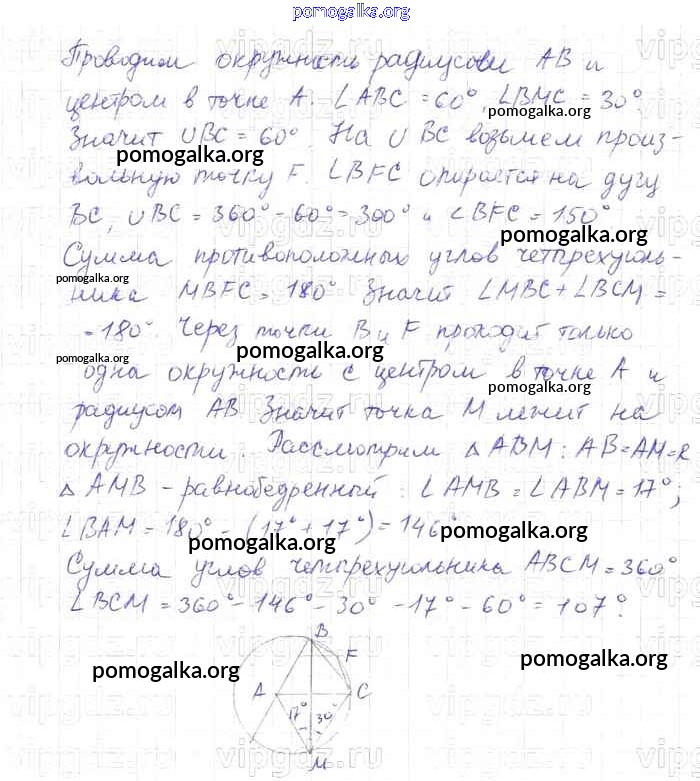 pomogalka.org
Проводим окружность радиусом AB и
центром в точке A. ∠ABC = 60°, ∠BMC = 30°
pomogalka.org
Значит ∪BC = 60°. На ∪ BC возьмем произ-
pomogalka.org
вольную точку F. ∠BFC опирается на дугу
BC, ∪BC = 360° - 60° = 300° и ∠BFC = 150°
pomogalka.org
Сумма противоположных углов четырехуголь-
pomogalka.org
ника MBFC = 180° Значит ∠MBC + ∠BCM =
pomogalka.org
= 180°. Через точки B и F проходит только
pomogalka.org
pomogalka.org
одна окружность с центром в точке A и
pomogalka.org
радиусом AB. Значит точка M лежит на
окружности. Рассмотрим △ ABM: AB = AM = R
△ AMB - равнобедренный: ∠AMB = ∠ABM = 17°;
∠BAM = 180° - (17° + 17°) = 146°
pomogalka.org
pomogalka.org
Сумма углов четырехугольника ABCM = 360°
∠BCM = 360° - 146° - 30° - 17° - 60° = 107°.
B
F
pomogalka.org
pomogalka.org
A
C
17°
30°
M
vipgdz.ru